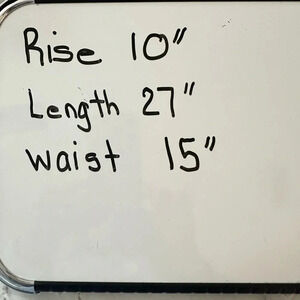 Rise 10"
Length 27"
waist 15"